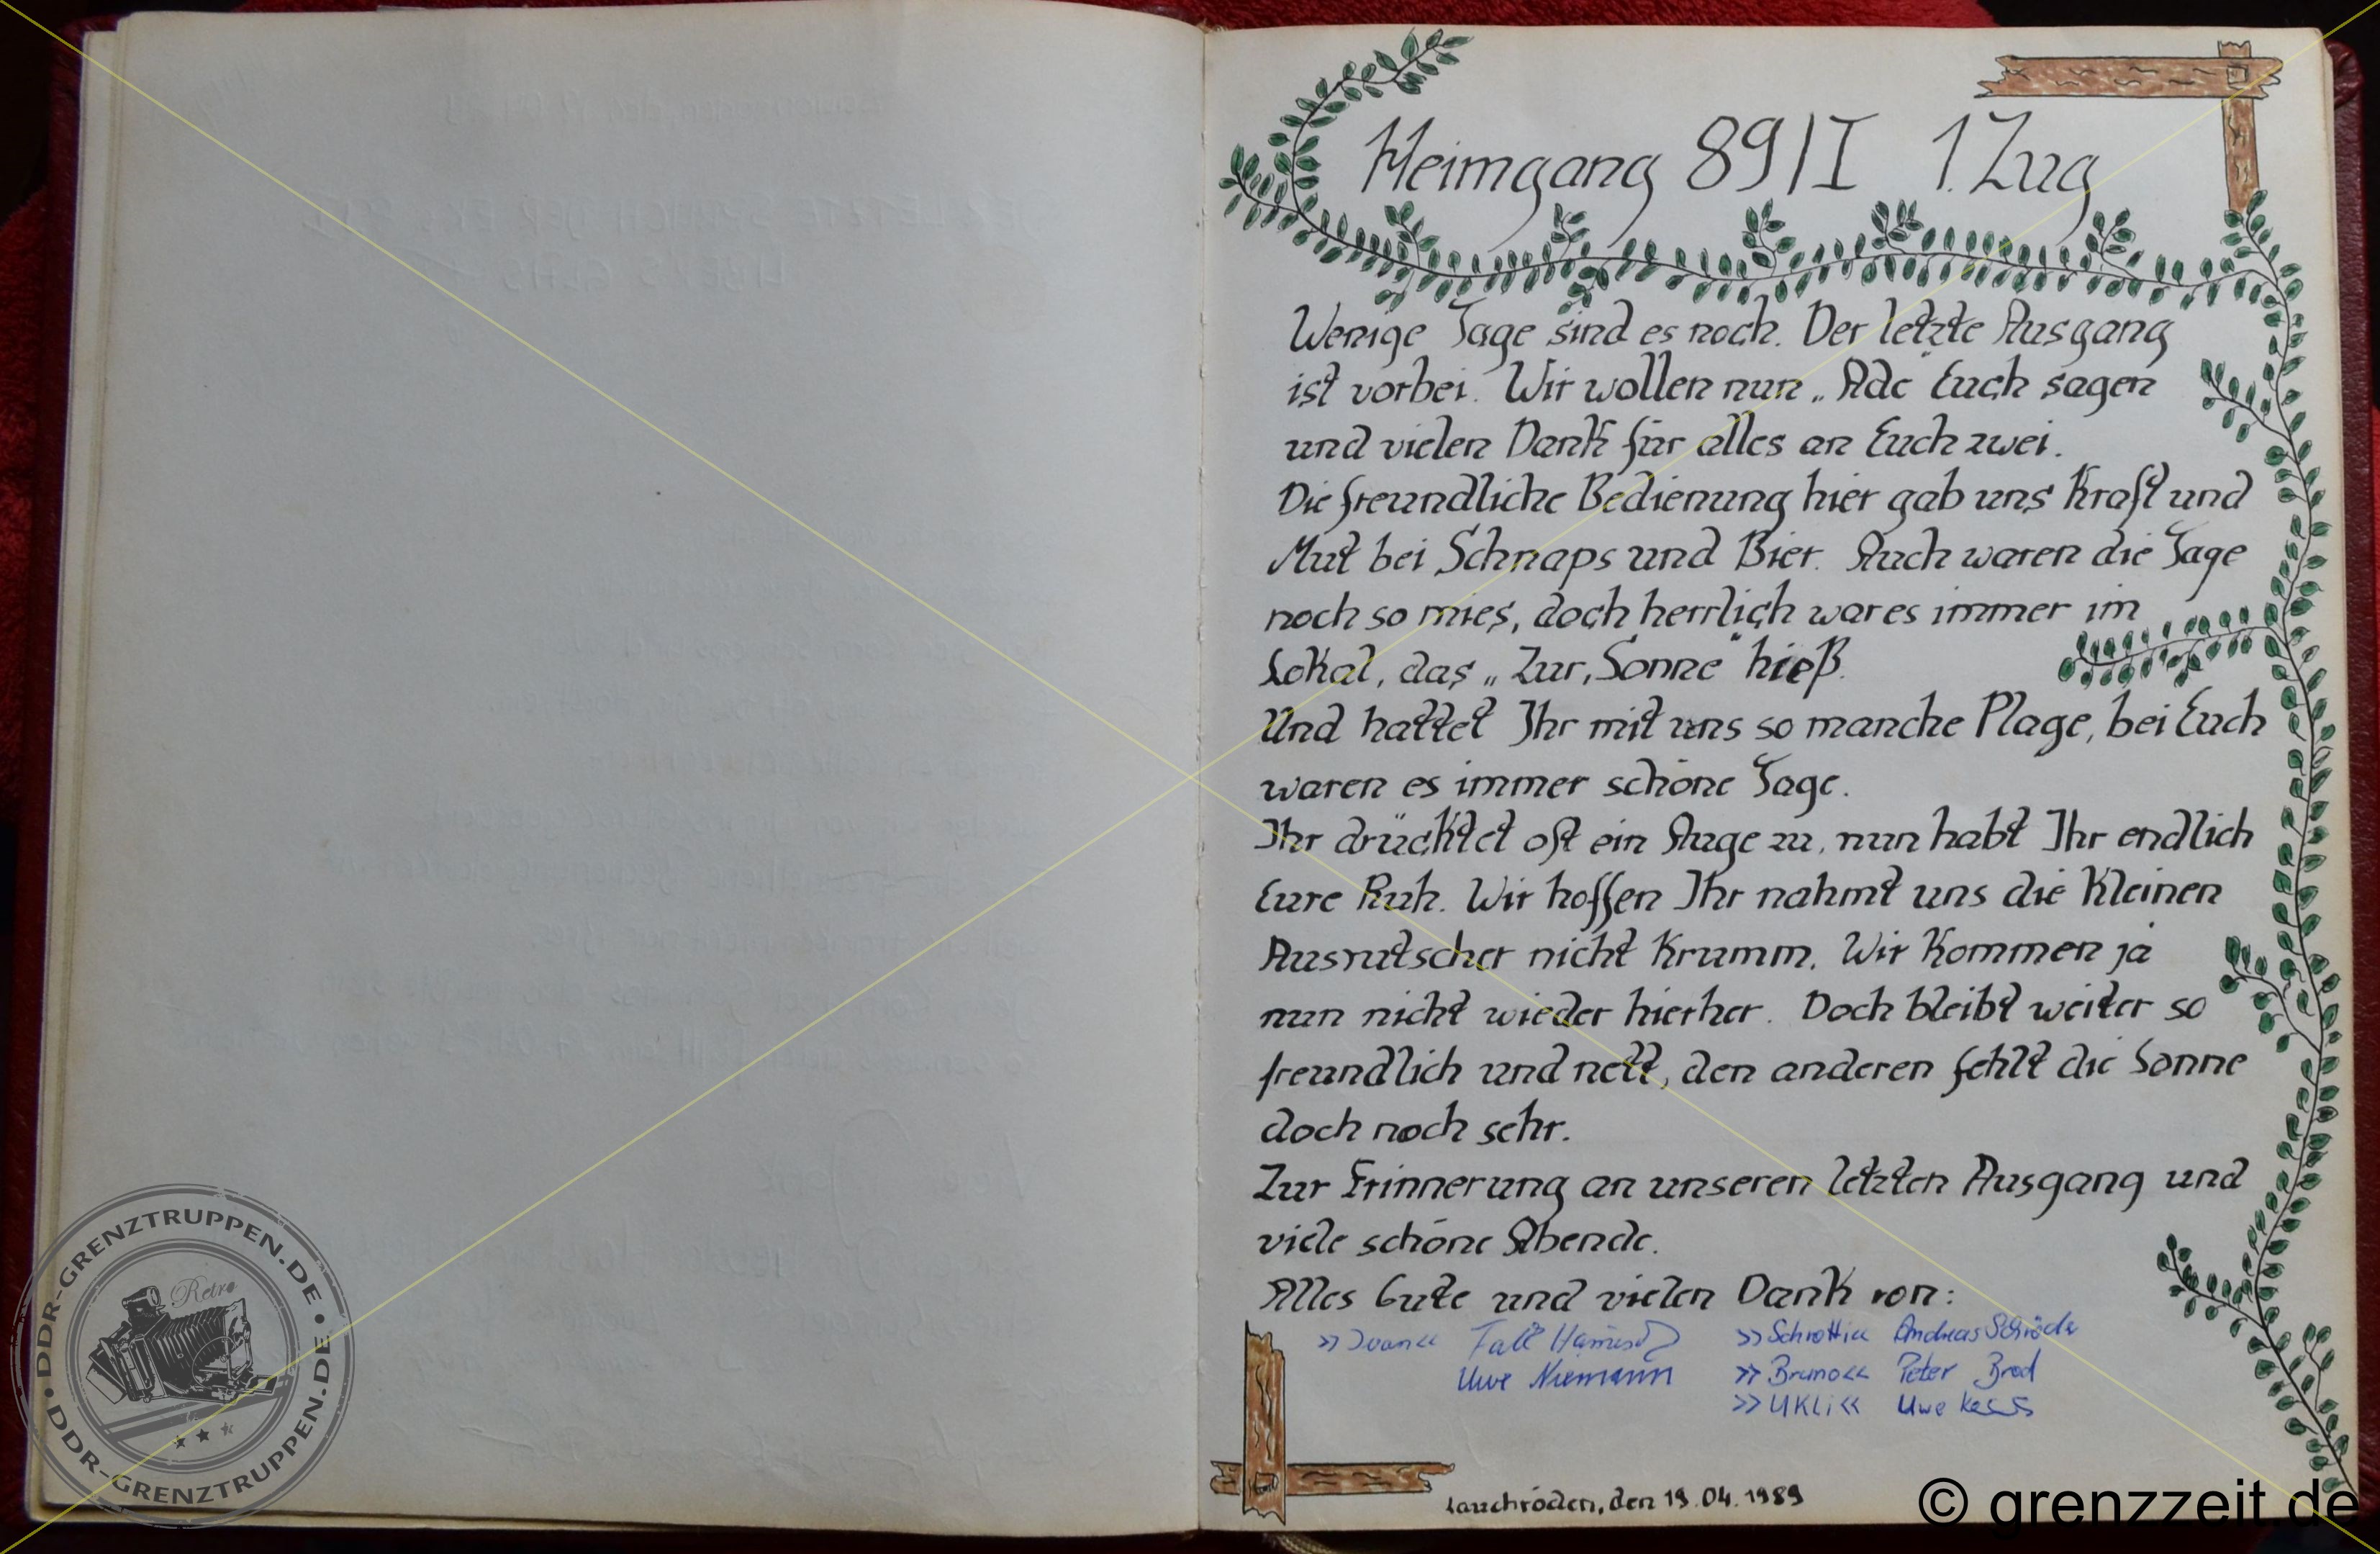 Heimgang 89/I 1. Zug
Wenige Tage sind es noch. Der letzte Ausgang
ist vorbei. Wir wollen nun „Ade" Euch sagen
und vielen Dank für alles an Euch zwei.
Die freundliche Bedienung hier gab uns Kraft und
Mut bei Schnaps und Bier. Auch waren die Tage
noch so mies, doch herrlich war es immer im
Lokal, das „Zur Sonne" hieß.
Und hattet Ihr mit uns so manche Plage, bei Euch
waren es immer schöne Tage.
Ihr drücktet oft ein Auge zu, nun habt Ihr endlich
Eure Ruh. Wir hoffen Ihr nahmt uns die kleinen
Ausrutscher nicht krumm. Wir kommen ja
nun nicht wieder hierher. Doch bleibt weiter so
freundlich und nett, den anderen fehlt die Sonne
doch noch sehr.
Zur Erinnerung an unseren letzten Ausgang und
viele schöne Abende.
Alles Gute und vielen Dank von:
»Ivan« Falk »Schrotti« Andreas Schröder
Uwe Niemann »Bruno« Peter Brod
»UKLI« Uwe
Lauchröden, den 19.04.1989
DDR-GRENZTRUPPEN.DE • DDR-GRENZTRUPPEN.DE •
Retro
© grenzzeit de